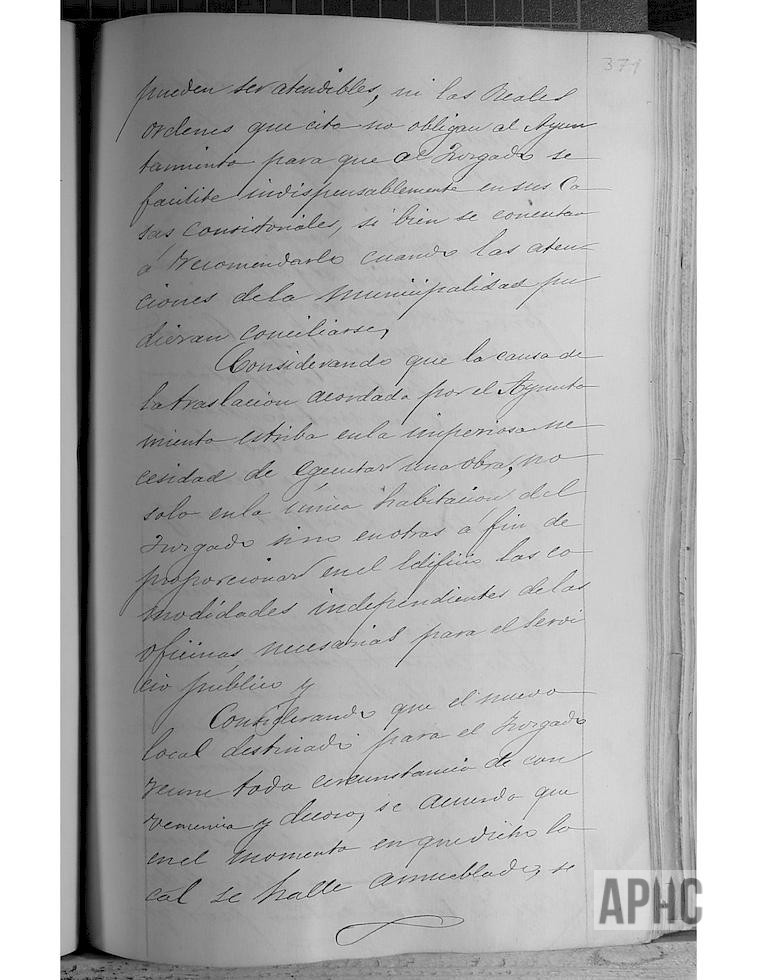 371
pueden ser atendibles, ni las Reales
ordenes que cita no obligan al Ayun
tamiento para que al Juzgado se
facilite indispensablemente en sus Ca
sas consistoriales, si bien se concretan
á recomendarlo cuando las aten-
ciones de la municipalidad pu
dieran conciliarse,
Considerando que la causa de
la traslacion acordada por el Ayunta
miento estriba en la imperiosa ne
cesidad de egecutar una obra, no
solo en la única habitacion del
Juzgado sino en otras a fin de
proporcionar en el Edificio las co
modidades independientes de las
oficinas necesarias para el servi
cio público y
Considerando que el nuevo
local destinado para el Juzgado
reune toda circunstancia de con
veniencia y decoro, se acuerda que
en el momento en que dicho lo
cal se halle amueblado, se
APHC